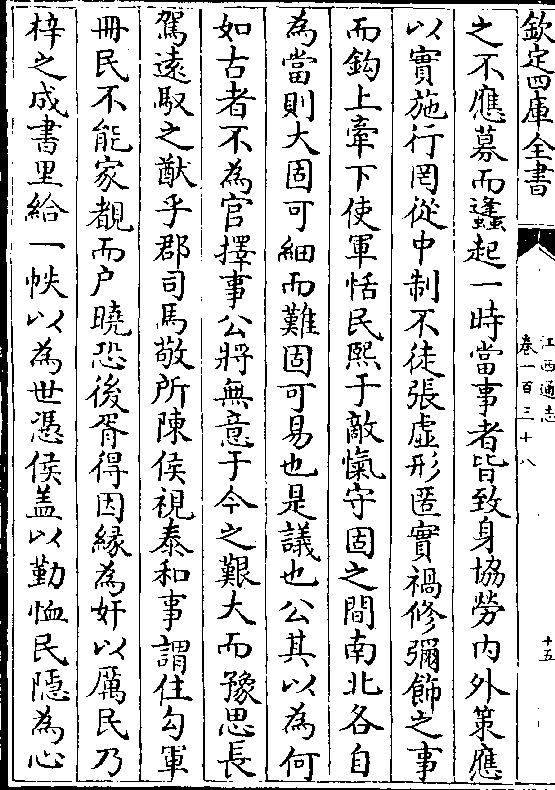 欽定四庫全書
江西通志
卷一百三十八
十五
之不應募而蠭起一時當事者皆致身協勞内外策應
以實施行罔從中制不徒張虛形匿實禍修彌飾之事
而鈎上牽下使軍恬民熙于敵愾守固之間南北各自
為當則大固可細而難固可易也是議也公其以為何
如古者不為官擇事公將無意于今之艱大而豫思長
駕遠馭之猷乎郡司馬敬所陳侯視泰和事謂住勾軍
冊民不能家覩而户曉恐後胥得因緣為奸以厲民乃
梓之成書里給一帙以為世憑侯盖以勤恤民隱為心